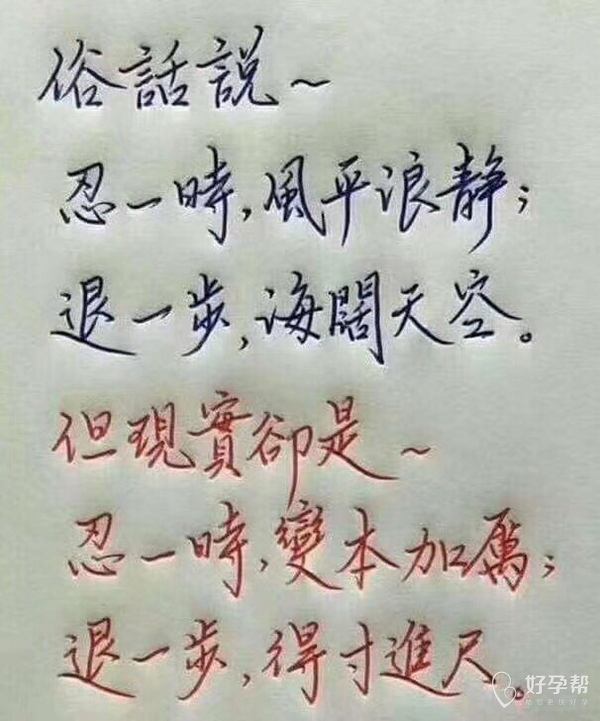 俗話說~
忍一時,風平浪靜;
退一步,海闊天空。
但現實卻是~
忍一時,變本加厲;
退一步,得寸進尺。
好孕帮